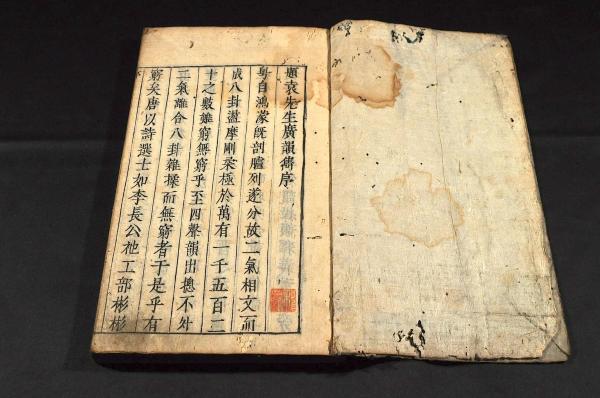 題袁先生廣韻傳序
粵自鴻蒙旣剖臚列遂分故二氣相交而
成八卦盪摩剛柔極於萬有一千五百二
十之數雖窮無窮乎至四聲韻出摠不外
二氣離合八卦雜揉而無窮者于是乎有
窮矣唐以詩選士如李長公杝工部彬彬